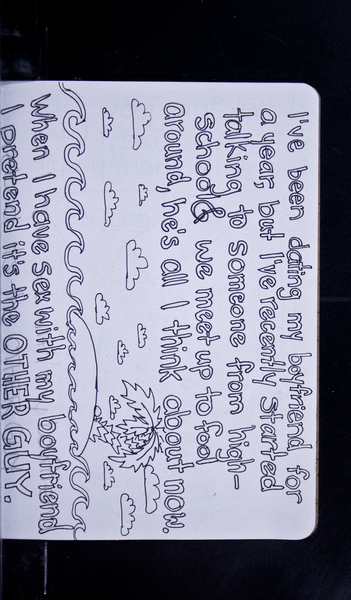 I've been dating my boyfriend for
a year, but I've recently started
talking to someone from high-
school & we meet up to fool
around, he's all I think about now.
When I have sex with my boyfriend
I pretend it's the OTHER GUY.